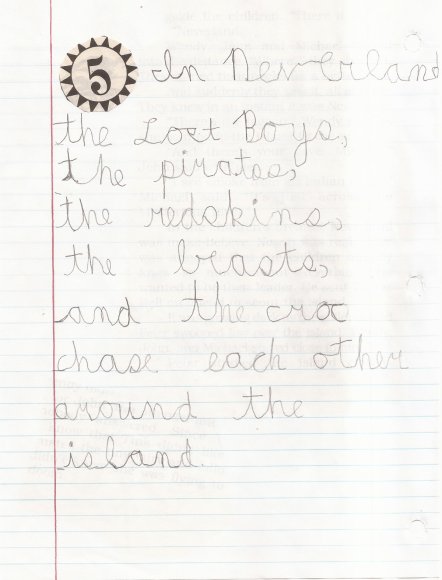 5 In Neverland
the Lost Boys,
the pirates,
the redskins,
the beasts,
and the croc
chase each other
around the
island.